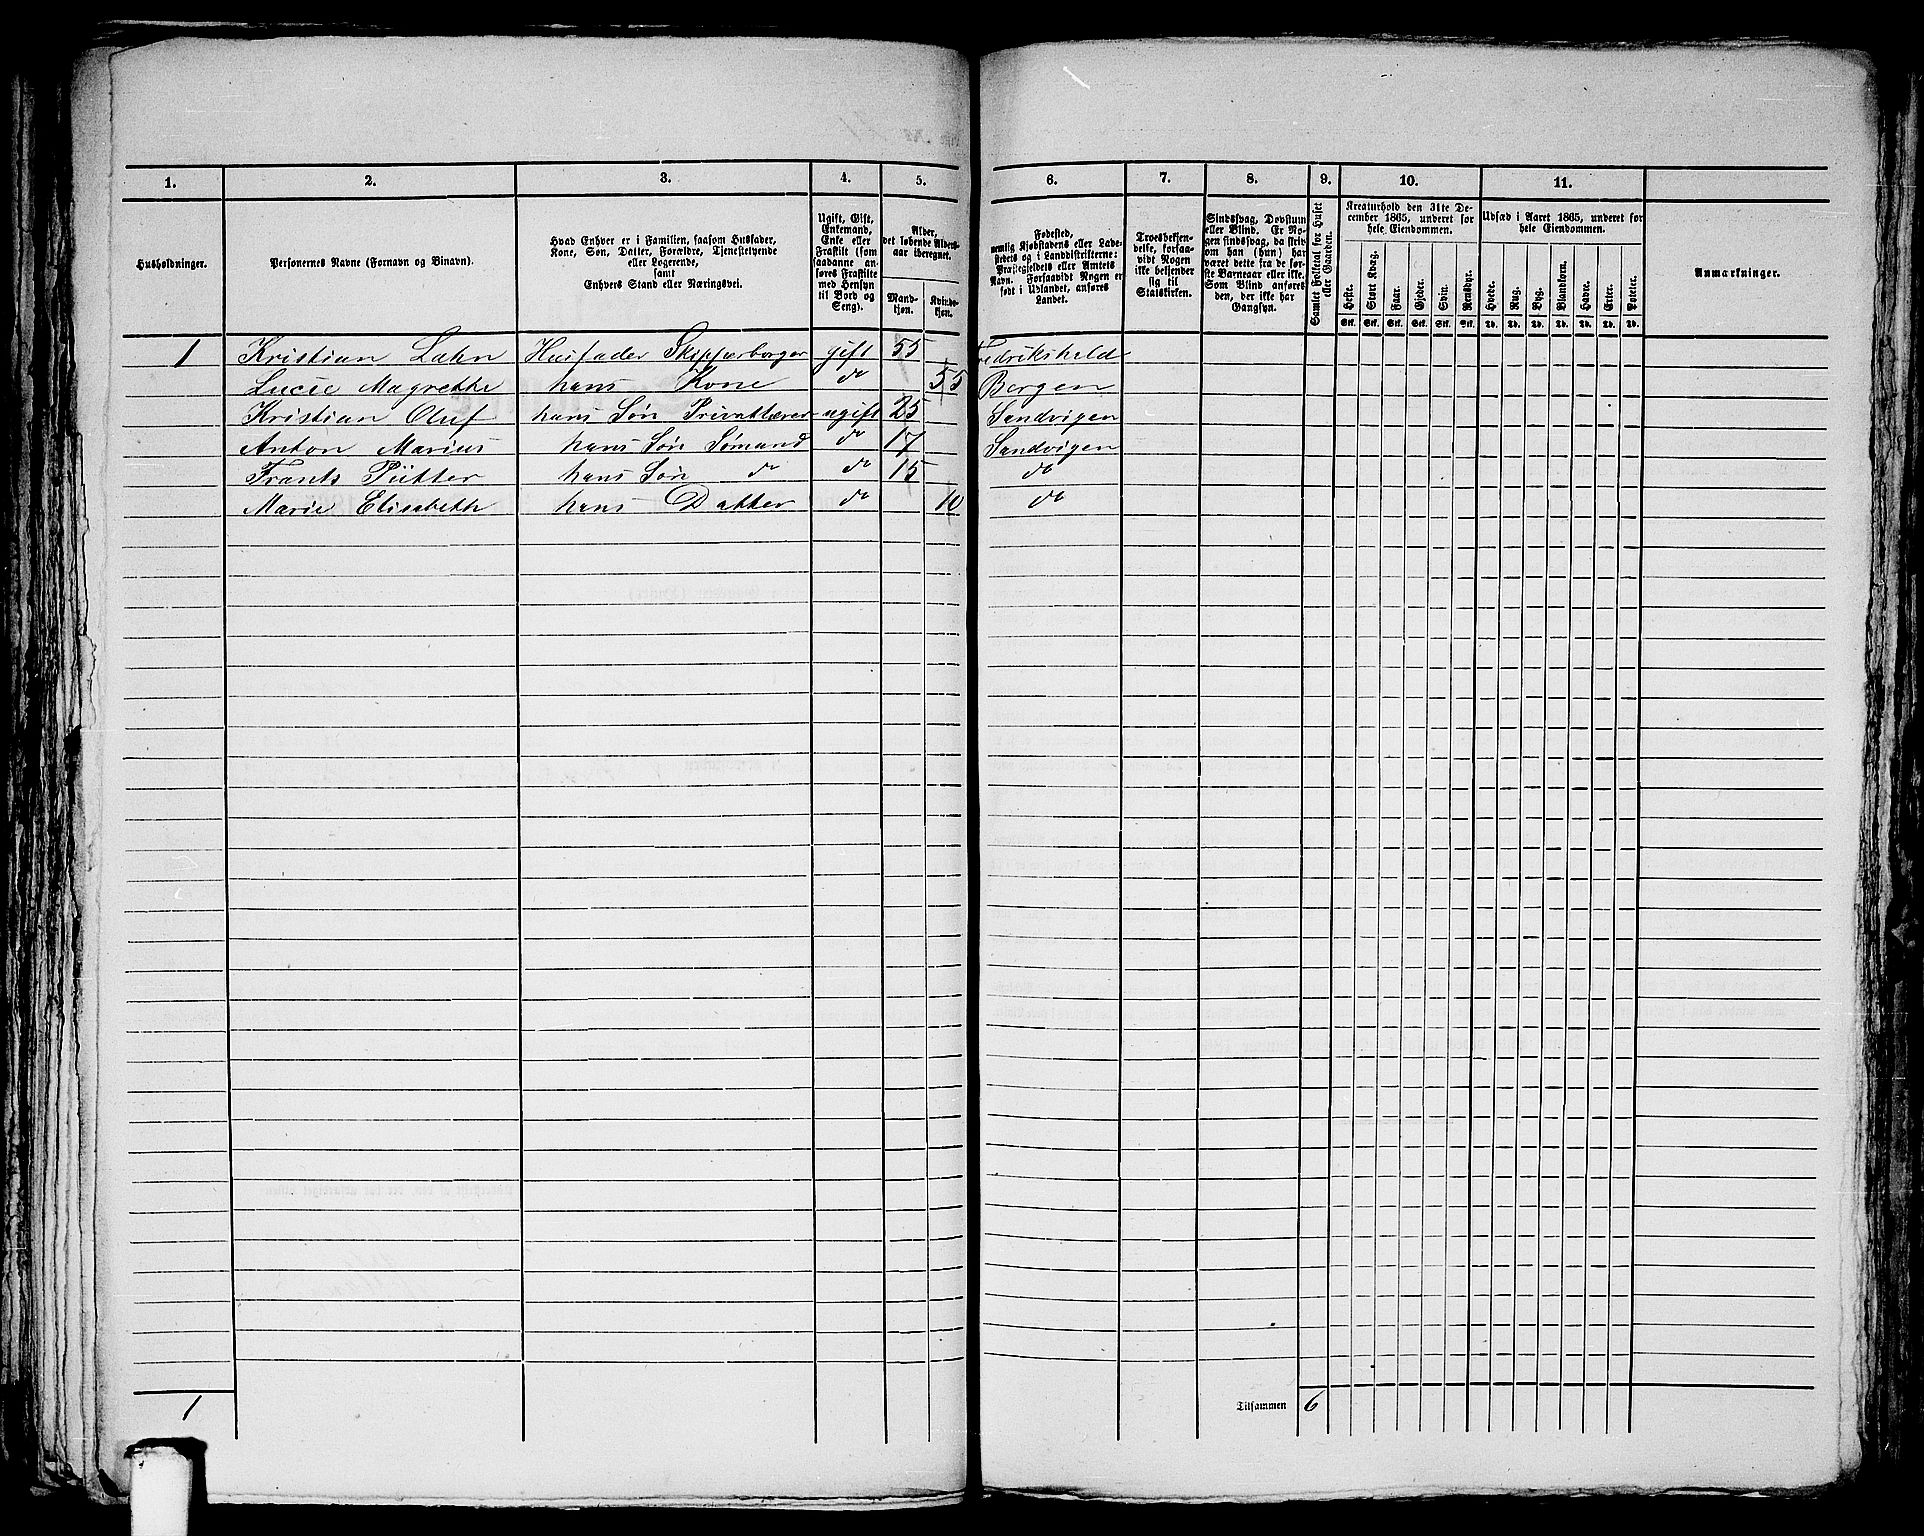 1. 2. 3. 4. 5. 6. 7. 8. 9. 10. 11.
Husholdninger.
Personernes Navne (Fornavn og Binavn).
Hvad Enhver er i Familien, saasom Husfader,
Kone, Søn, Datter, Forældre, Tjenestetyende
eller Logerende,
samt
Enhvers Stand eller Næringsvei.
Ugift, Gift,
Enkemand,
Enke eller
Fraskilt (som
saadanne an-
føres Fraskilte
med Hensyn
til Bord og
Seng).
Alder,
det løbende Alders-
aar iberegnet.
Mand-
kjøn.
Kvinde-
kjøn.
Fødested,
nemlig Kjøbstadens eller Lade-
stedets og i Landdistrikterne:
Præstegjeldets eller Amtets
Navn. Forsaavidt Nogen er
født i Udlandet, anføres
Landet.
Troesbekjen-
delse, forsaa-
vidt Nogen
ikke bekjender
sig til
Statskirken.
Sindssvag, Døvstum
eller Blind. Er No-
gen sindssvag, da skriv
om han (hun) har
været dette fra de før-
ste Barneaar eller ikke.
Som Blind anføres
den, der ikke har
Gangsyn.
Samlet Folketal for Huset
eller Gaarden.
Kreaturhold den 31te De-
cember 1865, underet for
hele Eiendommen.
Heste. Stort Kvæg. Faar. Gjeder. Svin. Rensdyr.
Stk. Stk. Stk. Stk. Stk. Stk.
Udsæd i Aaret 1865, underet for
hele Eiendommen.
Hvede. Rug. Byg. Blandkorn. Havre. Erter. Poteter.
Td. Td. Td. Td. Td. Td. Td.
Anmærkninger.
1 Kristian Lahn Husfader Skipperborger gift 55 Fredrikshald
Lucie Magrethe hans Kone do 55 Bergen
Kristian Oluf hans Søn Privatlærer ugift 25 Sandvigen
Anton Marius hans Søn Sømand do 17 Sandvigen
Frants Pütter hans Søn do do 15 do
Marie Elisabeth hans Datter do 10 do
1 Tilsammen 6